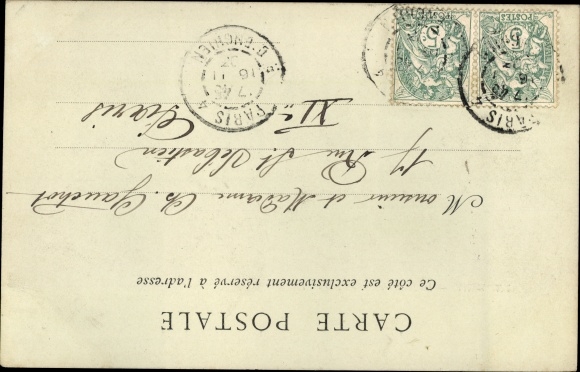 CARTE POSTALE
Ce côté est exclusivement réservé à l'adresse
Monsieur et Madame Ch. Gauchot
17 Rue St Sébastien
Paris
XIe
PARIS
7 45
16 11
D'ENGHIEN
POSTES
5
POSTES
5
PARIS
7 45
16